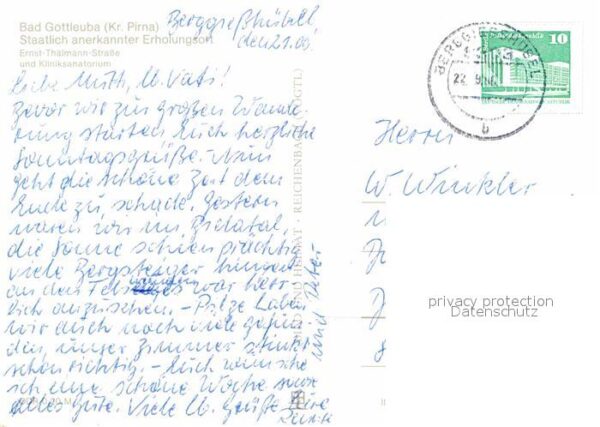 Bad Gottleuba (Kr. Pirna)
Staatlich anerkannter Erholungsort
Ernst-Thälmann-Straße
und Kliniksanatorium
Berggießhübel
den 21.
Liebe Mutti, lb. Vati!
Bevor wir zur großen Wande-
rung starten Euch herzliche
Sonntagsgrüße. Nun
geht die schöne Zeit dem
Ende zu, schade. Gestern
waren wir im Bielatal,
die Sonne schien prächtig
viele Bergsteiger hingen
an den Felswänden war herr-
lich anzusehen. - Pilze haben
wir auch noch viele gefun-
den, unser Zimmer stinkt
schon richtig. - Euch wünsche
ich eine schöne Woche
alles Gute. Viele lb. Grüße Eure
und Peter
BILD UND HEIMAT · REICHENBACH (VOGTL)
BERGGIESSHÜBEL
22. 9.
b
10
Herrn
W. Winkler
privacy protection
Datenschutz